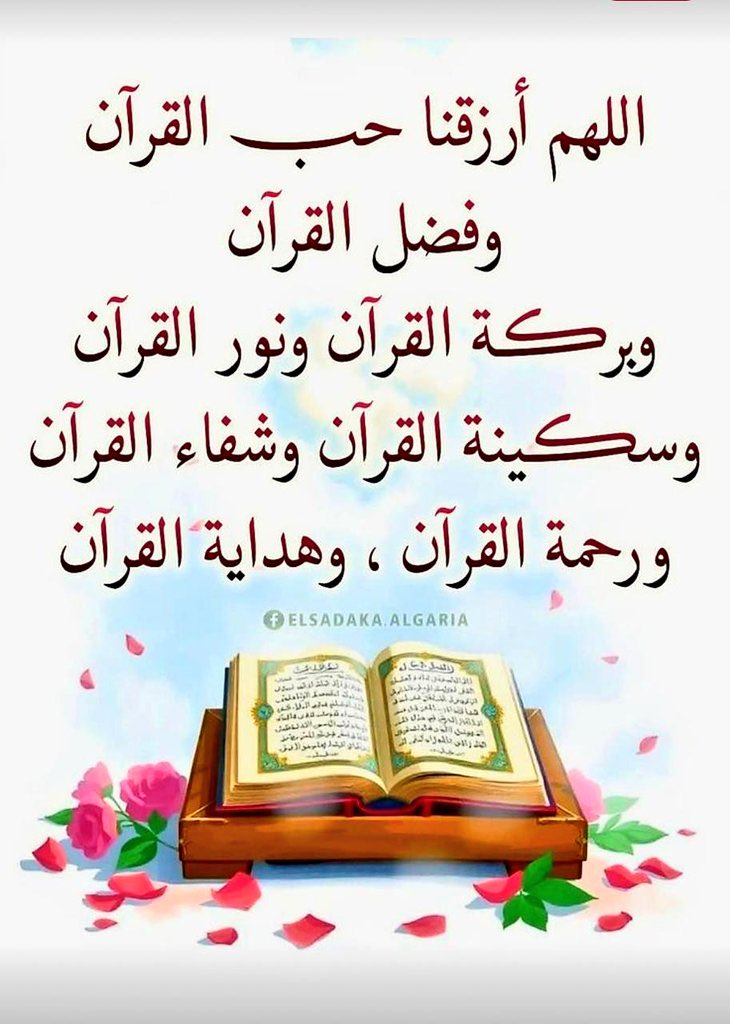 اللهم أرزقنا حب القرآن
وفضل القرآن
وبركة القرآن ونور القرآن
وسكينة القرآن وشفاء القرآن
ورحمة القرآن ، وهداية القرآن
ELSADAKA.ALGARIA